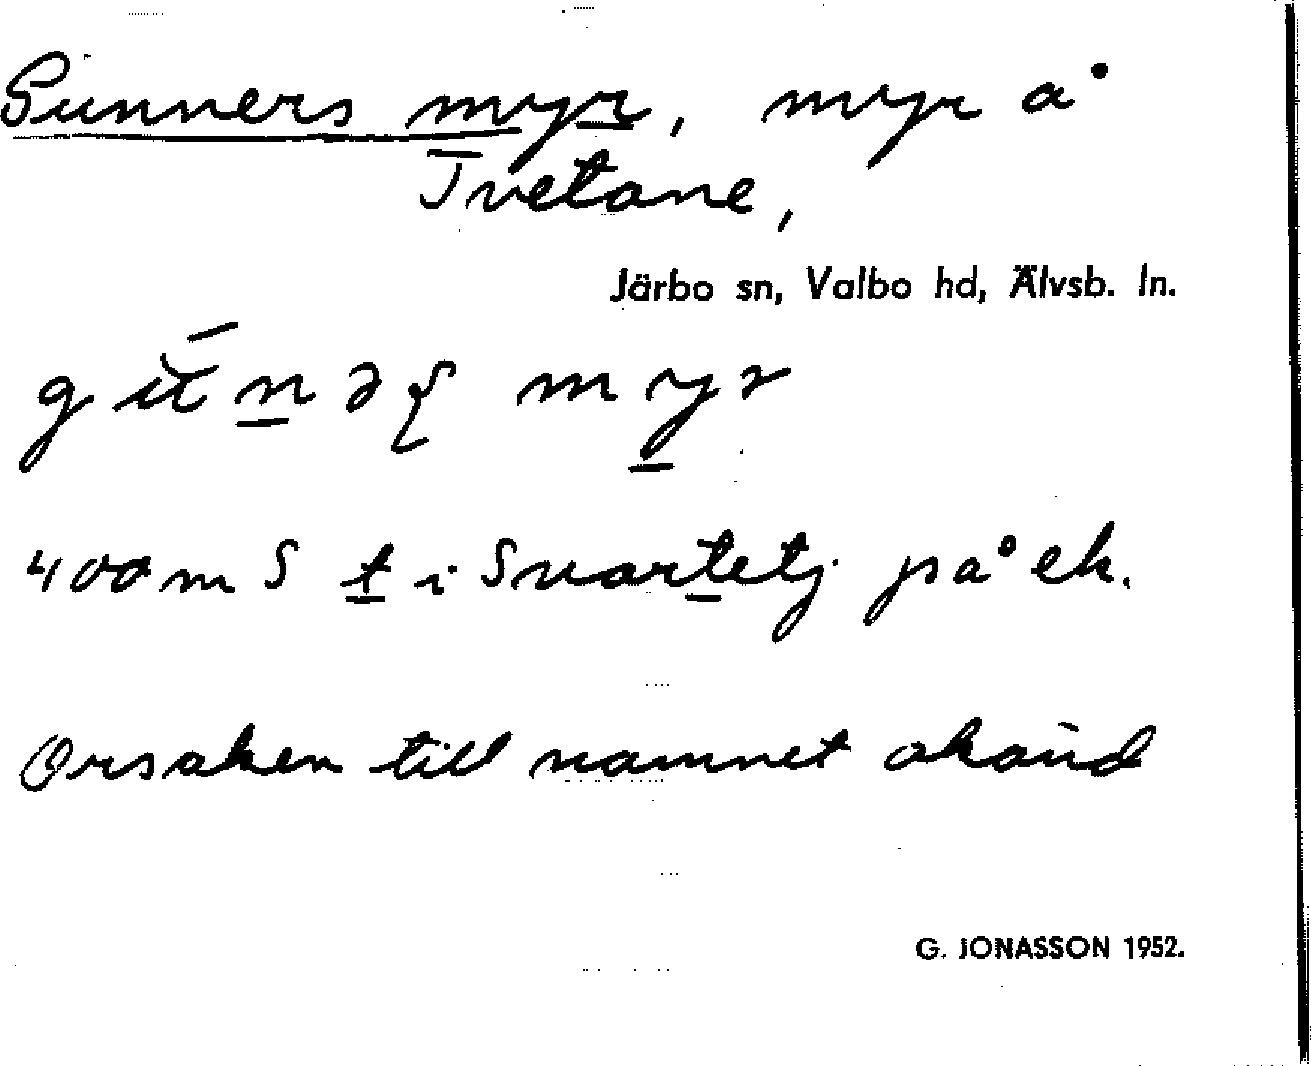 Gunners myr, myr å
Tvetane,
Järbo sn, Valbo hd, Älvsb. ln.
gúnəʂ myr
400 m S t i Svartetj på ek.
Orsaken till namnet okänd
G. JONASSON 1952.